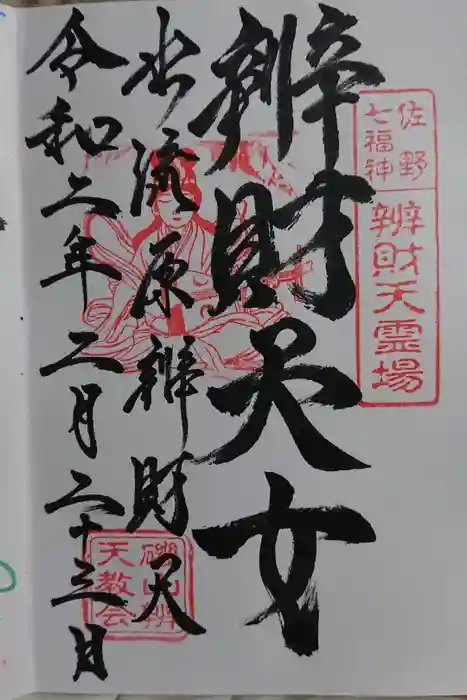 佐野
七福神
辨財天霊場
辨財天女
水流原辨財天
令和二年二月二十三日
磯山辨
天教会